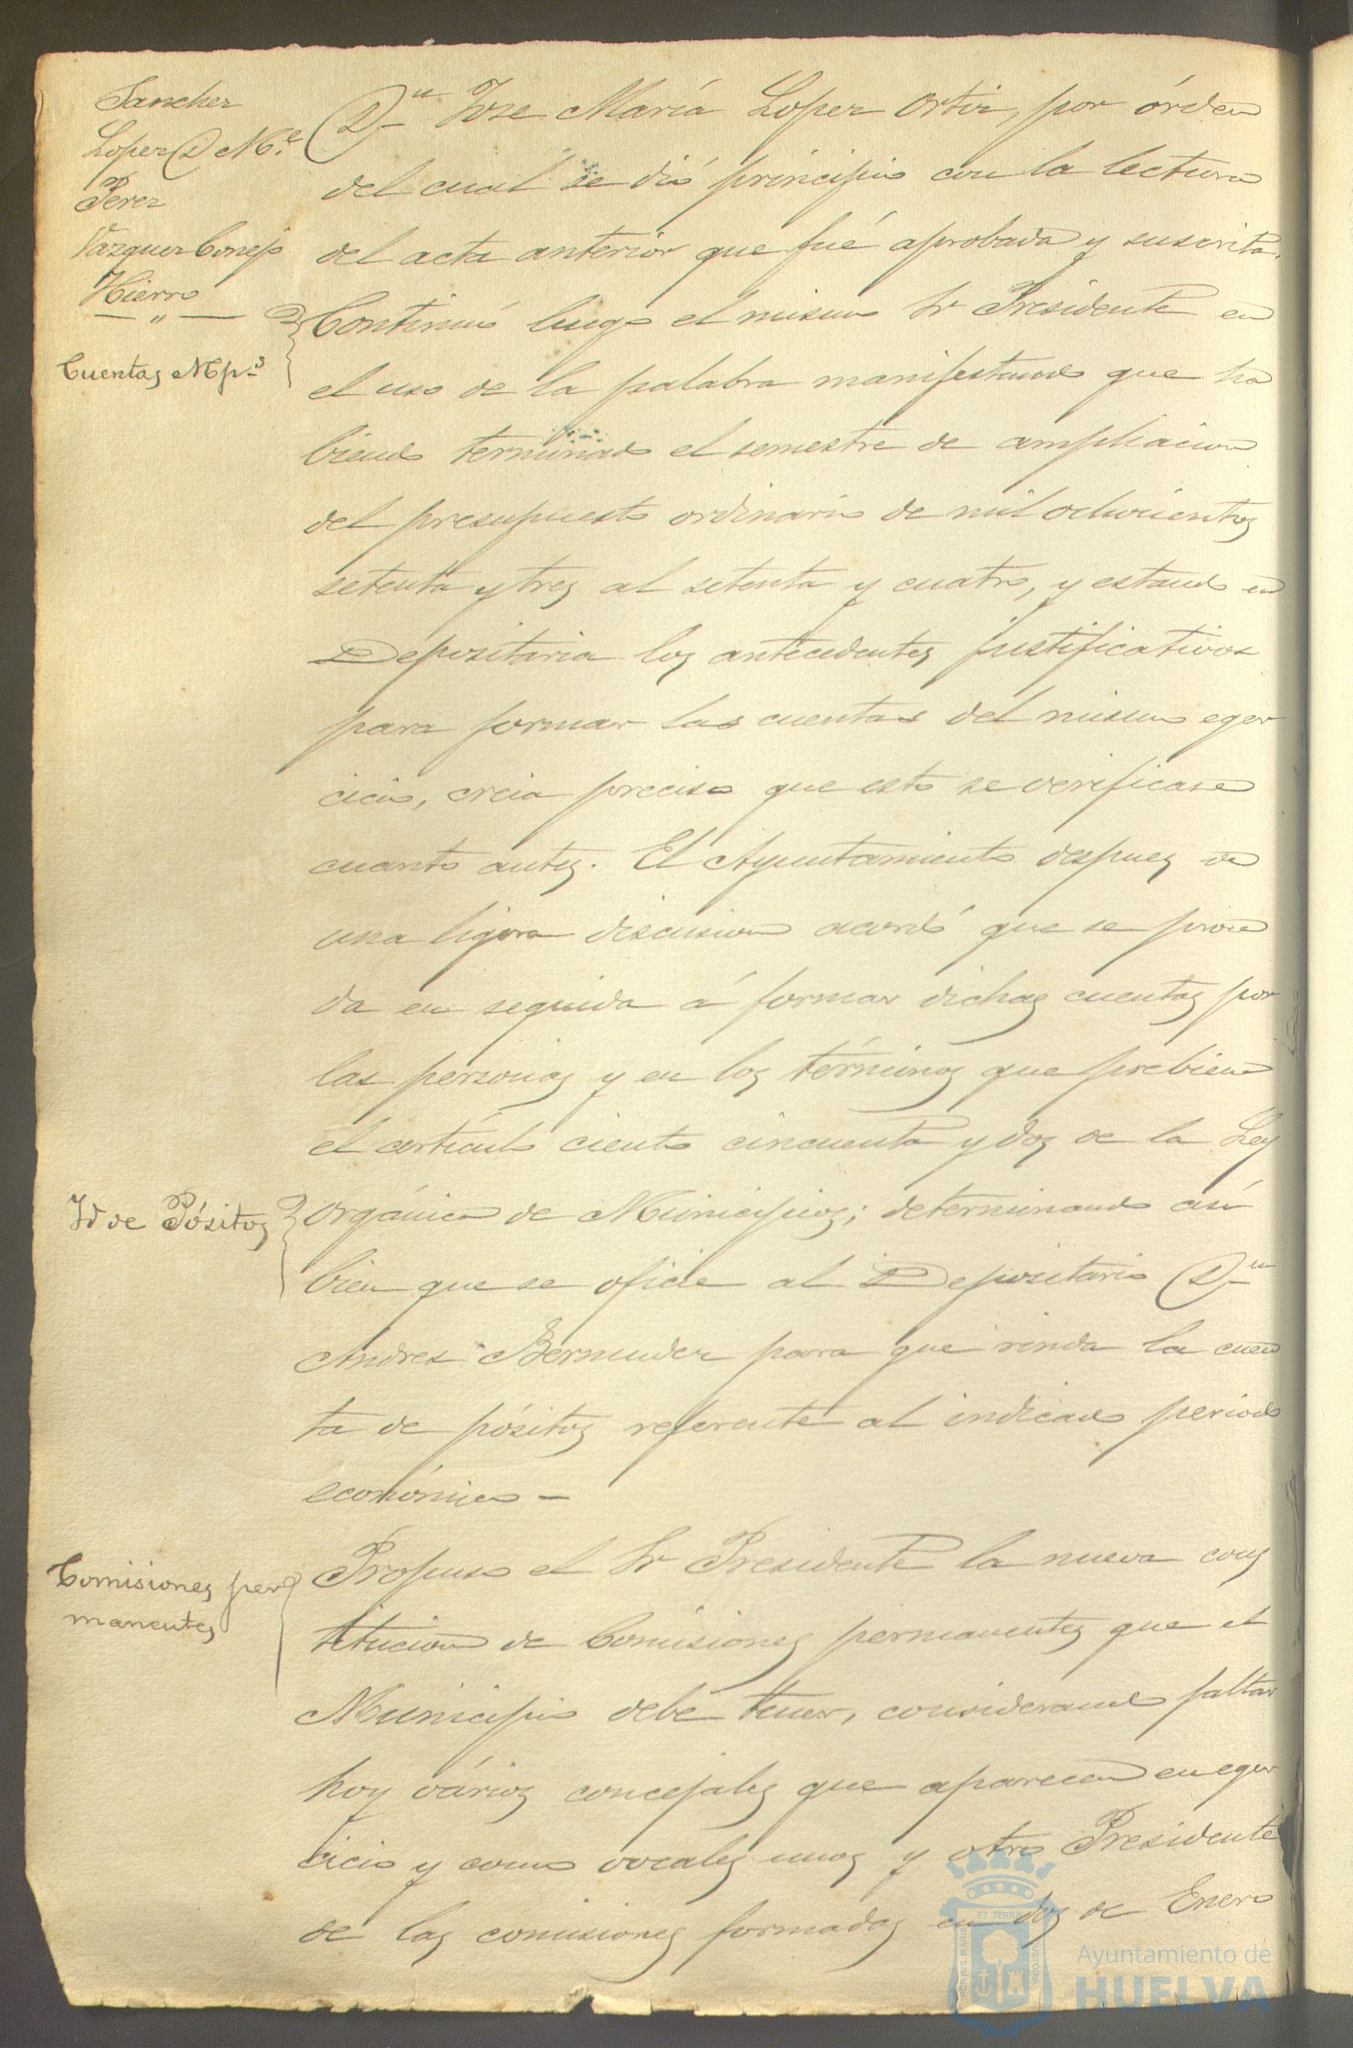 Sanchez
Lopez D Me
Perez
Vazquez Conejo
Hierro
Cuentas Mps
Dn Jose María Lopez Ortiz, por órden
del cual se dió principio con la lectura
del acta anterior que fué aprobada y suscrita.
Continuó luego el mismo Sr Presidente en
el uso de la palabra manifestando que ha
biendo terminado el semestre de ampliacion
del presupuesto ordinario de mil ochocientos
setenta y tres al setenta y cuatro, y estando en
Depositaria los antecedentes justificativos
para formar las cuentas del mismo eger
cicio, creia preciso que esto se verificase
cuanto antes. El Ayuntamiento despues de
una ligera discusion acordó que se proce
da en seguida á formar dichas cuentas por
las personas y en los términos que prebiene
el artículo ciento cincuenta y dos de la Ley
Id de Pósitos
orgánica de Municipios; determinando asi
bien que se oficie al Depositario Dn
Andres Bermudez para que rinda la cuen
ta de pósitos referente al indicado periodo
económico -
Comisiones per
manentes
Propuso el Sr Presidente la nueva cons
titucion de Comisiones permanentes que el
Municipio debe tener, considerando faltar
hoy vários concejales que aparecen en eger
cicio y como vocales unos y otro Presidente
de las comisiones formadas en dos de Enero
Ayuntamiento de
HUELVA